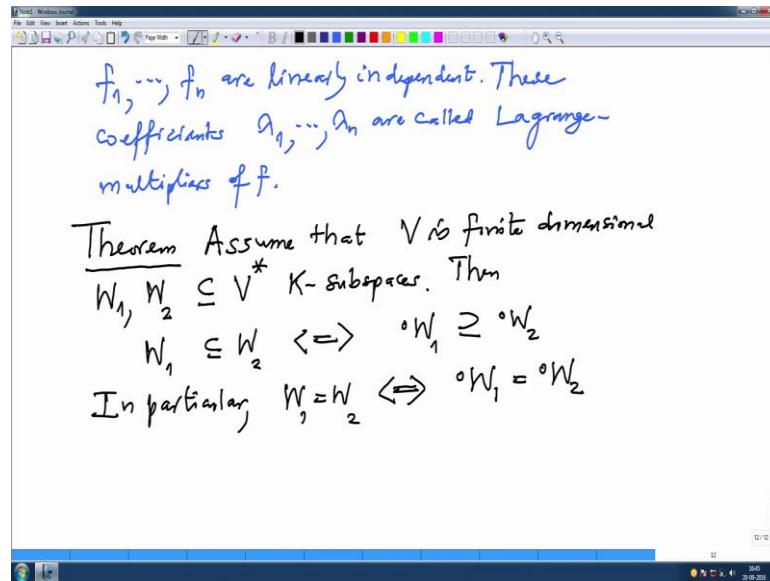 Note1 - Windows Journal
File Edit View Insert Actions Tools Help
Page Width
B I
f₁, ..., fₙ are linearly independent. These
coefficients a₁, ..., aₙ are called Lagrange-
multipliers of f.
Theorem Assume that V is finite dimensional
W₁, W₂ ⊆ V* K-subspaces. Then
W₁ ⊆ W₂ <=> °W₁ ⊇ °W₂
In particular, W₁ = W₂ <=> °W₁ = °W₂
12/12
12
16:45
20-09-2016